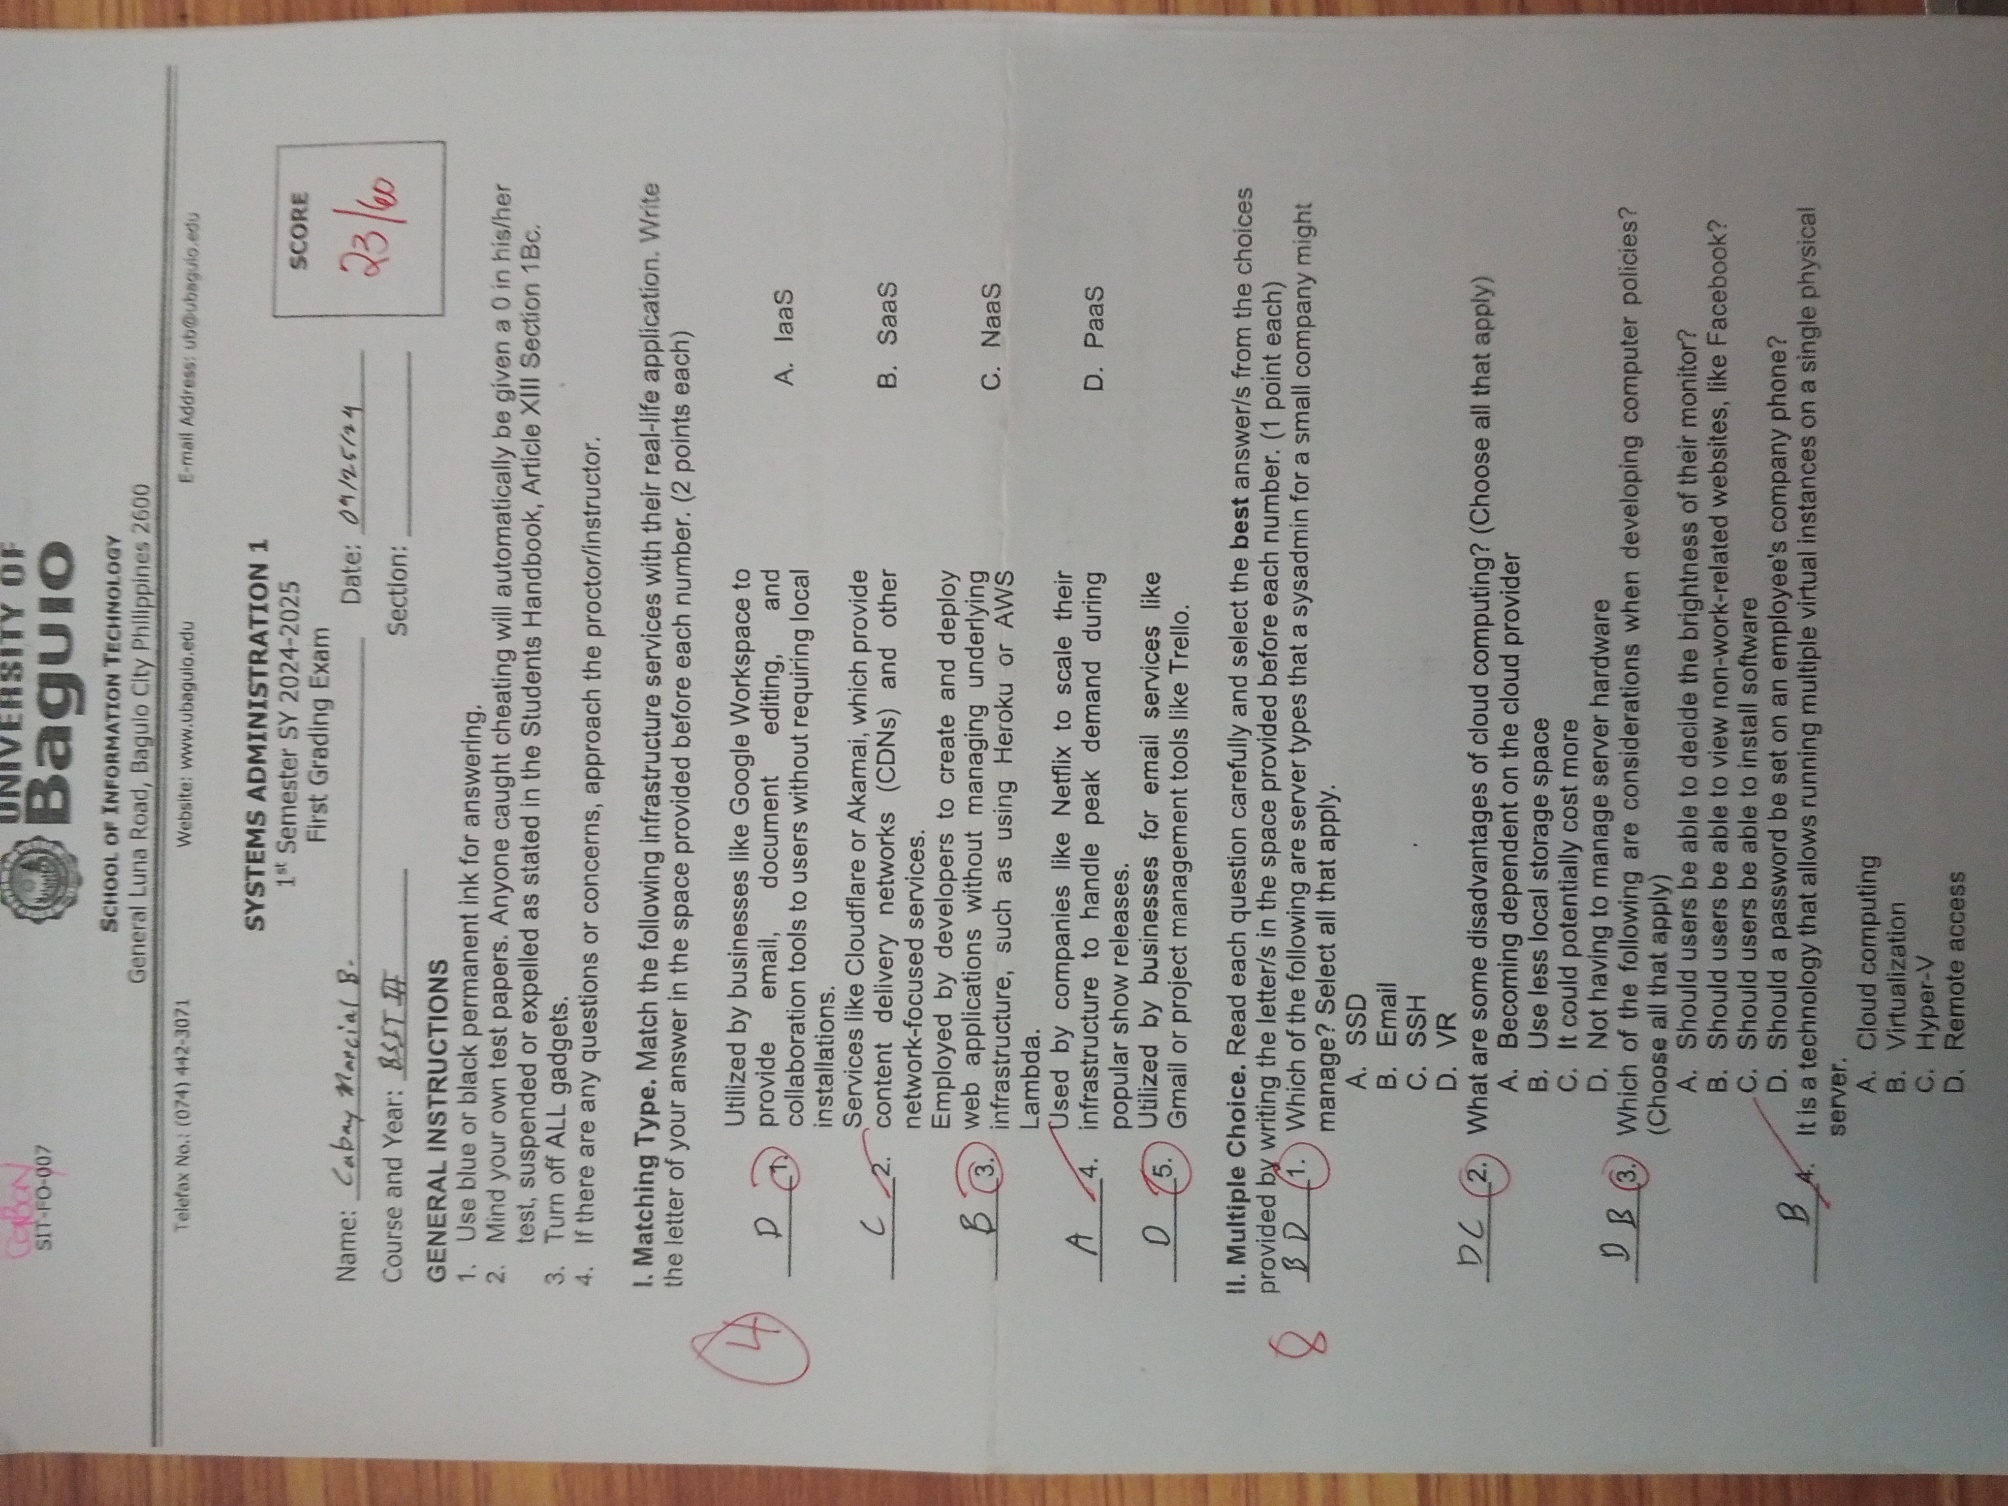 CABON
SIT-FO-007
UNIVERSITY OF
Baguio
SCHOOL OF INFORMATION TECHNOLOGY
General Luna Road, Baguio City Philippines 2600
Telefax No.: (074) 442-3071 Website: www.ubaguio.edu E-mail Address: ub@ubaguio.edu
SYSTEMS ADMINISTRATION 1
1st Semester SY 2024-2025
First Grading Exam
SCORE
23/60
Name: Cabay Marcial B. Date: 09/25/24
Course and Year: BSIT III Section:
GENERAL INSTRUCTIONS
1. Use blue or black permanent ink for answering.
2. Mind your own test papers. Anyone caught cheating will automatically be given a 0 in his/her
test, suspended or expelled as stated in the Students Handbook, Article XIII Section 1Bc.
3. Turn off ALL gadgets.
4. If there are any questions or concerns, approach the proctor/instructor.
I. Matching Type. Match the following infrastructure services with their real-life application. Write
the letter of your answer in the space provided before each number. (2 points each)
4
D 1. Utilized by businesses like Google Workspace to
provide email, document editing, and
collaboration tools to users without requiring local
installations.
A. IaaS
C 2. Services like Cloudflare or Akamai, which provide
content delivery networks (CDNs) and other
network-focused services.
B. SaaS
B 3. Employed by developers to create and deploy
web applications without managing underlying
infrastructure, such as using Heroku or AWS
Lambda.
C. NaaS
A 4. Used by companies like Netflix to scale their
infrastructure to handle peak demand during
popular show releases.
D. PaaS
D 5. Utilized by businesses for email services like
Gmail or project management tools like Trello.
II. Multiple Choice. Read each question carefully and select the best answer/s from the choices
provided by writing the letter/s in the space provided before each number. (1 point each)
8
B D 1. Which of the following are server types that a sysadmin for a small company might
manage? Select all that apply.
A. SSD
B. Email
C. SSH
D. VR
DC 2. What are some disadvantages of cloud computing? (Choose all that apply)
A. Becoming dependent on the cloud provider
B. Use less local storage space
C. It could potentially cost more
D. Not having to manage server hardware
D B 3. Which of the following are considerations when developing computer policies?
(Choose all that apply)
A. Should users be able to decide the brightness of their monitor?
B. Should users be able to view non-work-related websites, like Facebook?
C. Should users be able to install software
D. Should a password be set on an employee's company phone?
B 4. It is a technology that allows running multiple virtual instances on a single physical
server.
A. Cloud computing
B. Virtualization
C. Hyper-V
D. Remote access